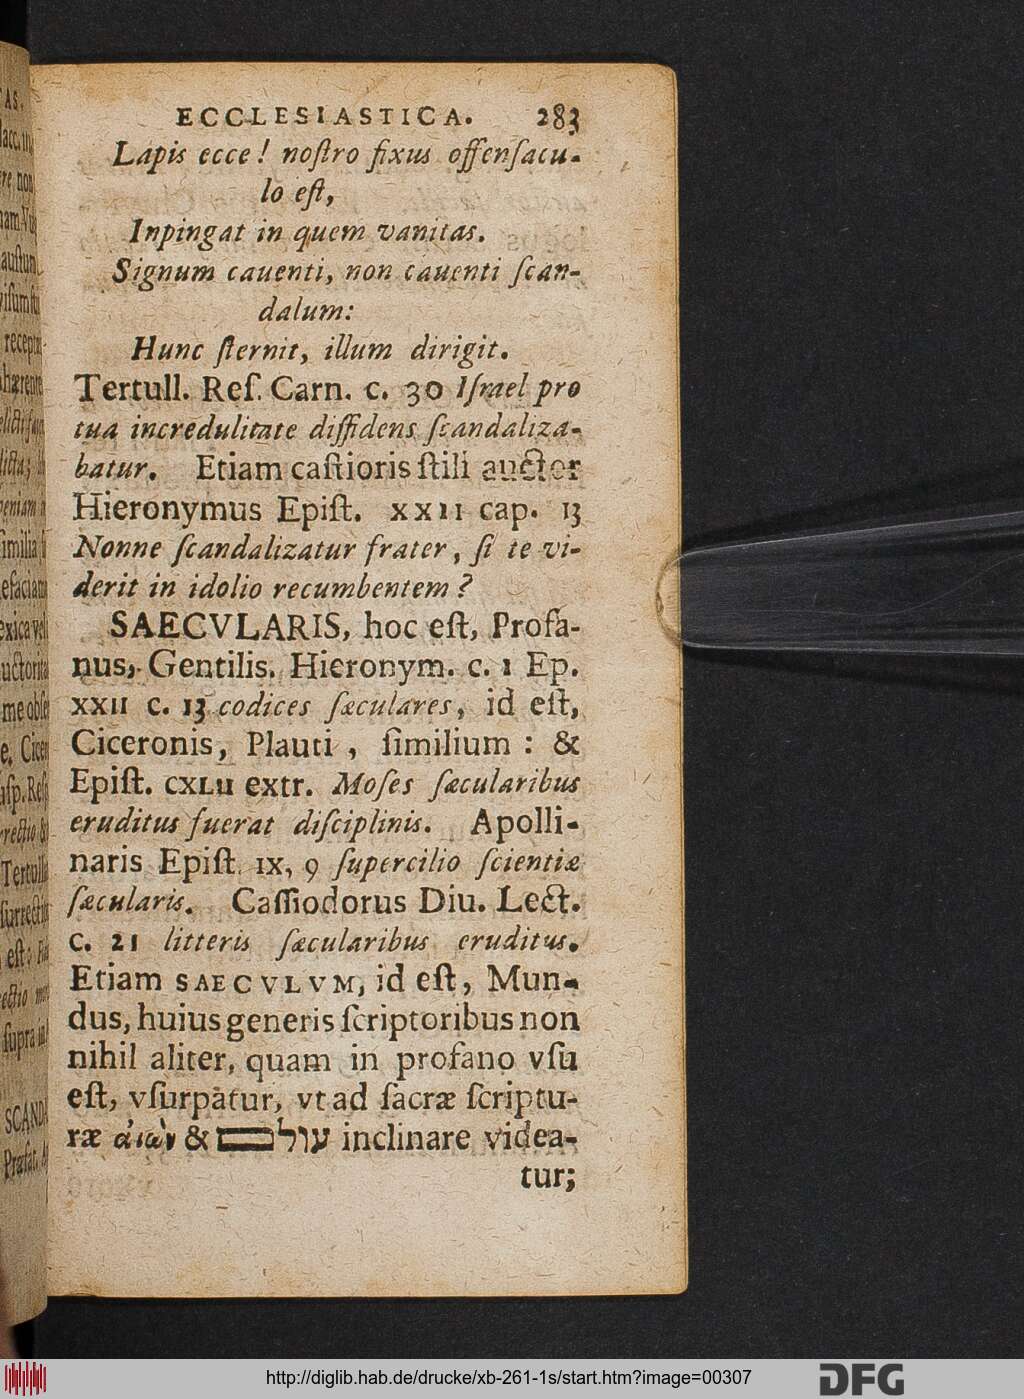 ECCLESIASTICA. 283
Lapis ecce! noſtro fixus offenſacu-
lo eſt,
Inpingat in quem vanitas.
Signum cauenti, non cauenti ſcan-
dalum:
Hunc ſternit, illum dirigit.
Tertull. Reſ. Carn. c. 30 Iſrael pro
tua incredulitate diffidens ſcandaliza-
batur. Etiam caſtioris ſtili auctor
Hieronymus Epiſt. XXII cap. 13
Nonne ſcandalizatur frater, ſi te vi-
derit in idolio recumbentem?
SAECVLARIS, hoc eſt, Profa-
nus, Gentilis. Hieronym. c. 1 Ep.
XXII c. 13 codices ſæculares, id eſt,
Ciceronis, Plauti, ſimilium: &
Epiſt. CXLII extr. Moſes ſæcularibus
eruditus fuerat diſciplinis. Apolli-
naris Epiſt. IX, 9 ſupercilio ſcientiæ
ſæcularis. Caſſiodorus Diu. Lect.
c. 21 litteris ſæcularibus eruditus.
Etiam SAECVLVM, id eſt, Mun-
dus, huius generis ſcriptoribus non
nihil aliter, quam in profano vſu
eſt, vſurpatur, vt ad ſacræ ſcriptu-
ræ αἰὼν & עולם inclinare videa-
tur;
http://diglib.hab.de/drucke/xb-261-1s/start.htm?image=00307
DFG